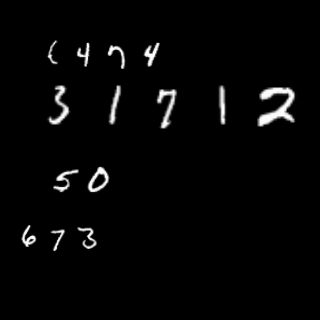 6474
31712
50
673